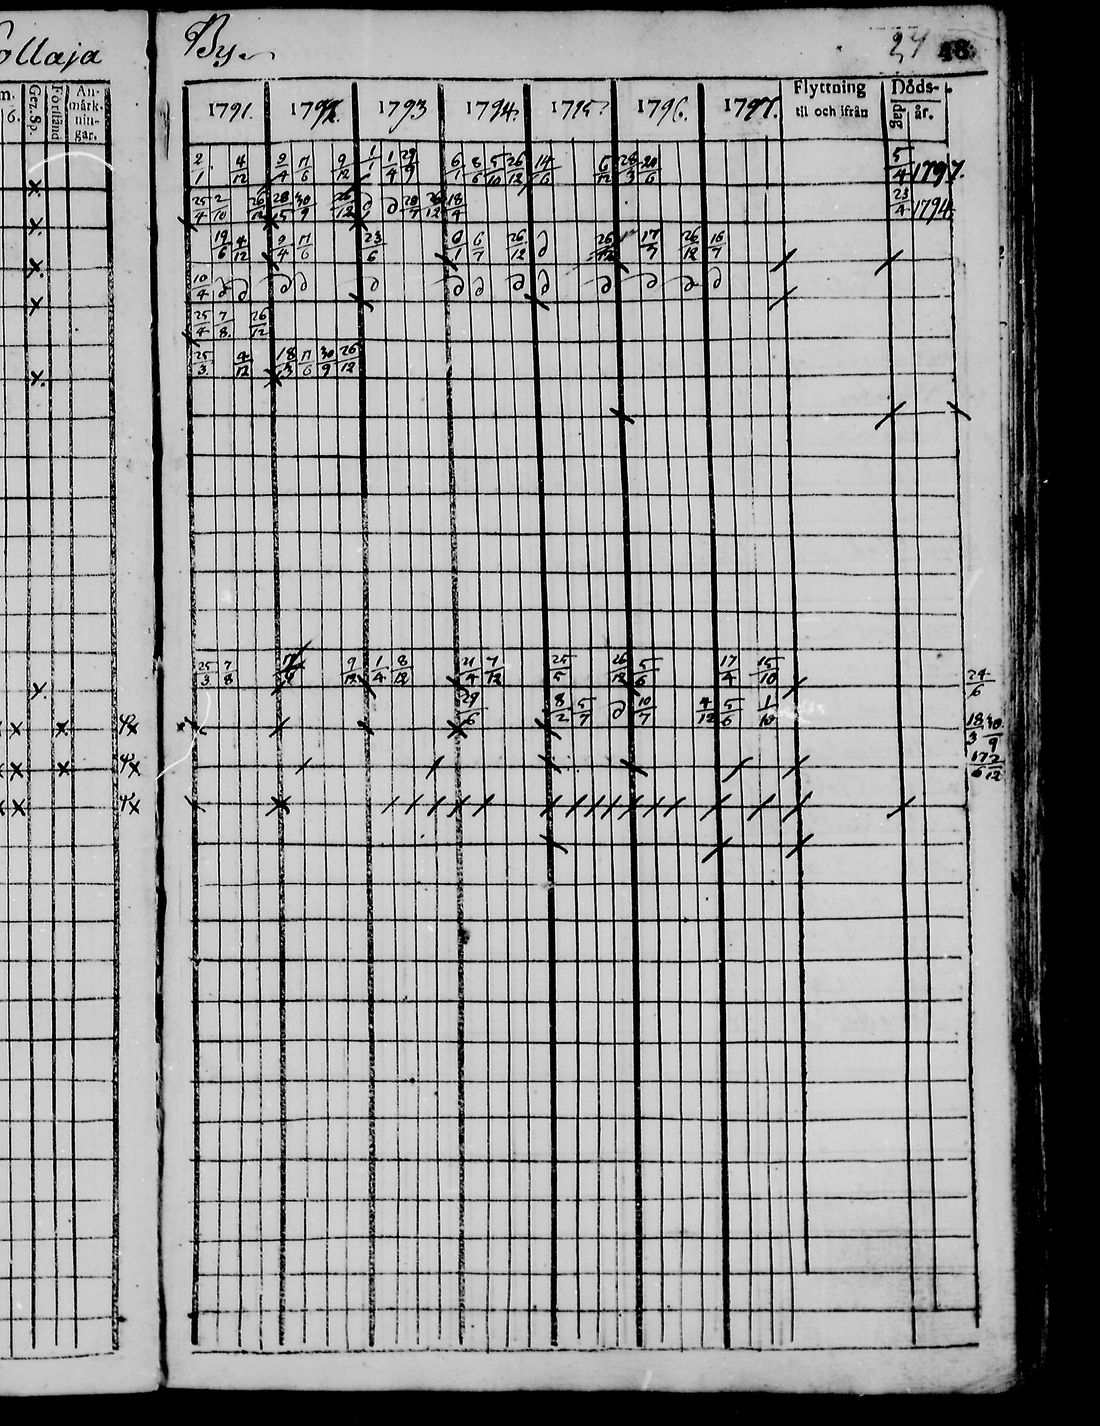 ollaja
By
24 48
m. Gez.Sp. Förstånd An-
6. märk-
nin-
gar.
1791. 1792. 1793 1794. 1795. 1796. 1797. Flyttning Döds-
til och ifrån dag år.
2/1 4/12 9/4 11/6 9/12 1/1 1/4 29/9 6/1 8/6 5/10 26/12 14/6 6/12 28/3 20/6 5/4 1797.
25/4 2/10 26/12 28/15 30/9 26/12 ∂ ∂ 20/7 26/12 18/4 23/4 1794
19/6 4/12 9/4 11/6 23/6 6/1 6/7 26/12 ∂ 26/12 17/7 26/12 16/7
10/4 ∂ ∂ ∂ ∂ ∂ ∂ ∂ ∂ ∂ ∂ ∂ ∂ ∂
25/4 7/8. 26/12
25/3. 4/12 18/3 11/6 30/9 26/12
25/3 7/8 9/12 1/4 8/12 21/4 7/12 25/5 26/12 5/6 17/4 15/10 24/6
29/6 8/2 5/7 ∂ 10/7 4/12 5/6 1/10 18/3 30/9
17/6 2/12